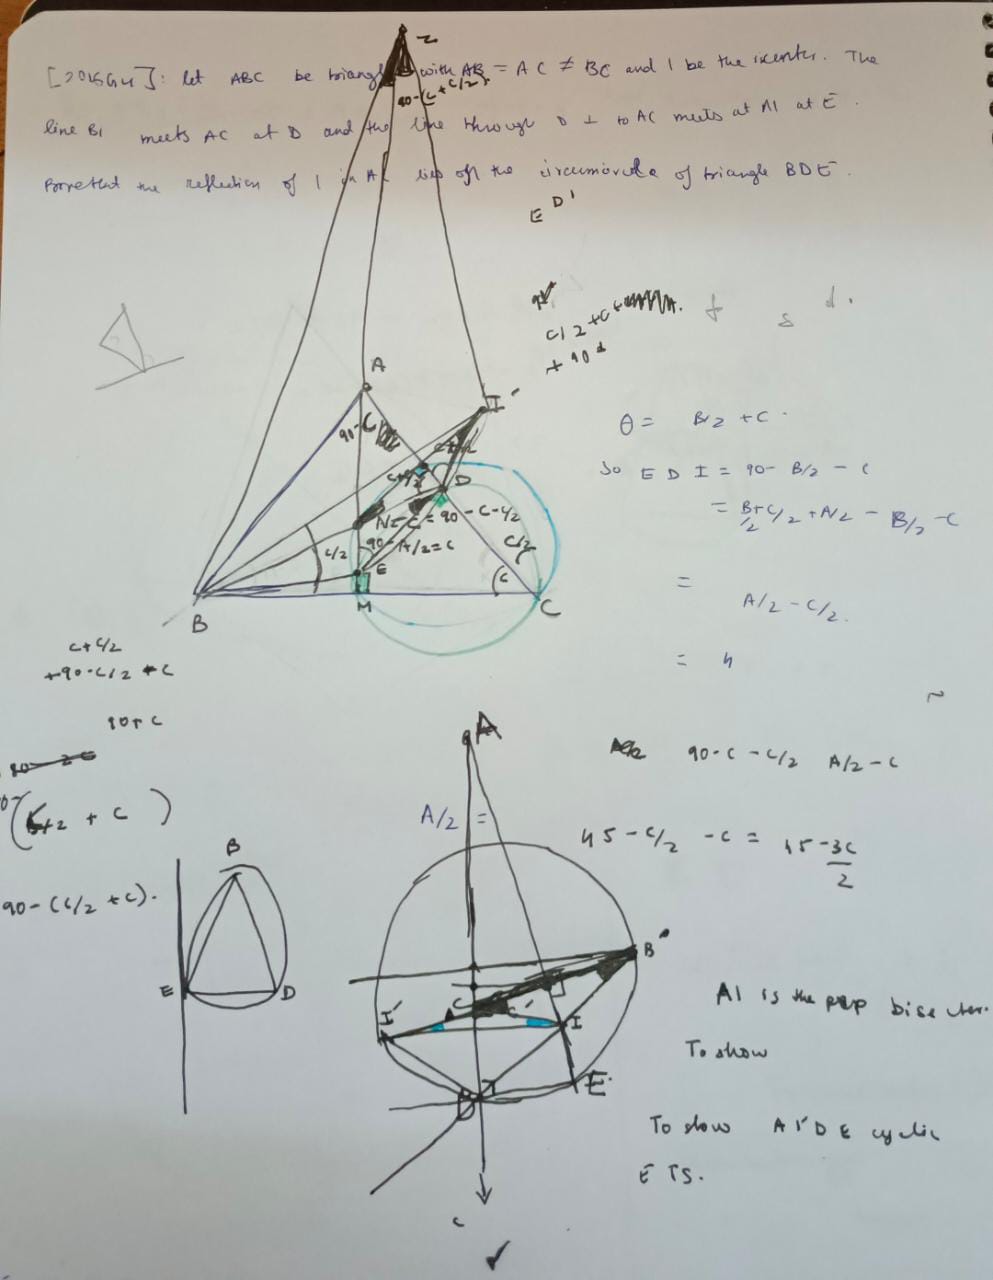 Z
[2016G4]: let ABC be triangle with AB = AC ≠ BC and I be the incenter. The
90-(C+C/2)
line BI meets AC at D and the line through D ⊥ to AC meets at AI at E.
Prove that the reflection of I in AC lies on the circumcircle of triangle BDE.
E D'
C/2 + C +
+ 90
A
I'
90-C
θ = B/2 + C.
So E D I = 90 - B/2 - C
= B/2 + C/2 + A/2 - B/2 - C
=
A/2 - C/2.
=
D
= 90 - C - C/2
C/2
90 - A/2 = C
C/2
C
E
B
M
C
C + C/2
+90 - C/2 + C
90 + C
(C/2 + C)
90 - (C/2 + C).
B
E
D
A
A/2 =
90 - C - C/2 A/2 - C
45 - C/2 - C = 45 - 3C/2
B'
I'
I
D
E
C
AI is the perp bisector.
To show
To show A I' D E cyclic
E TS.